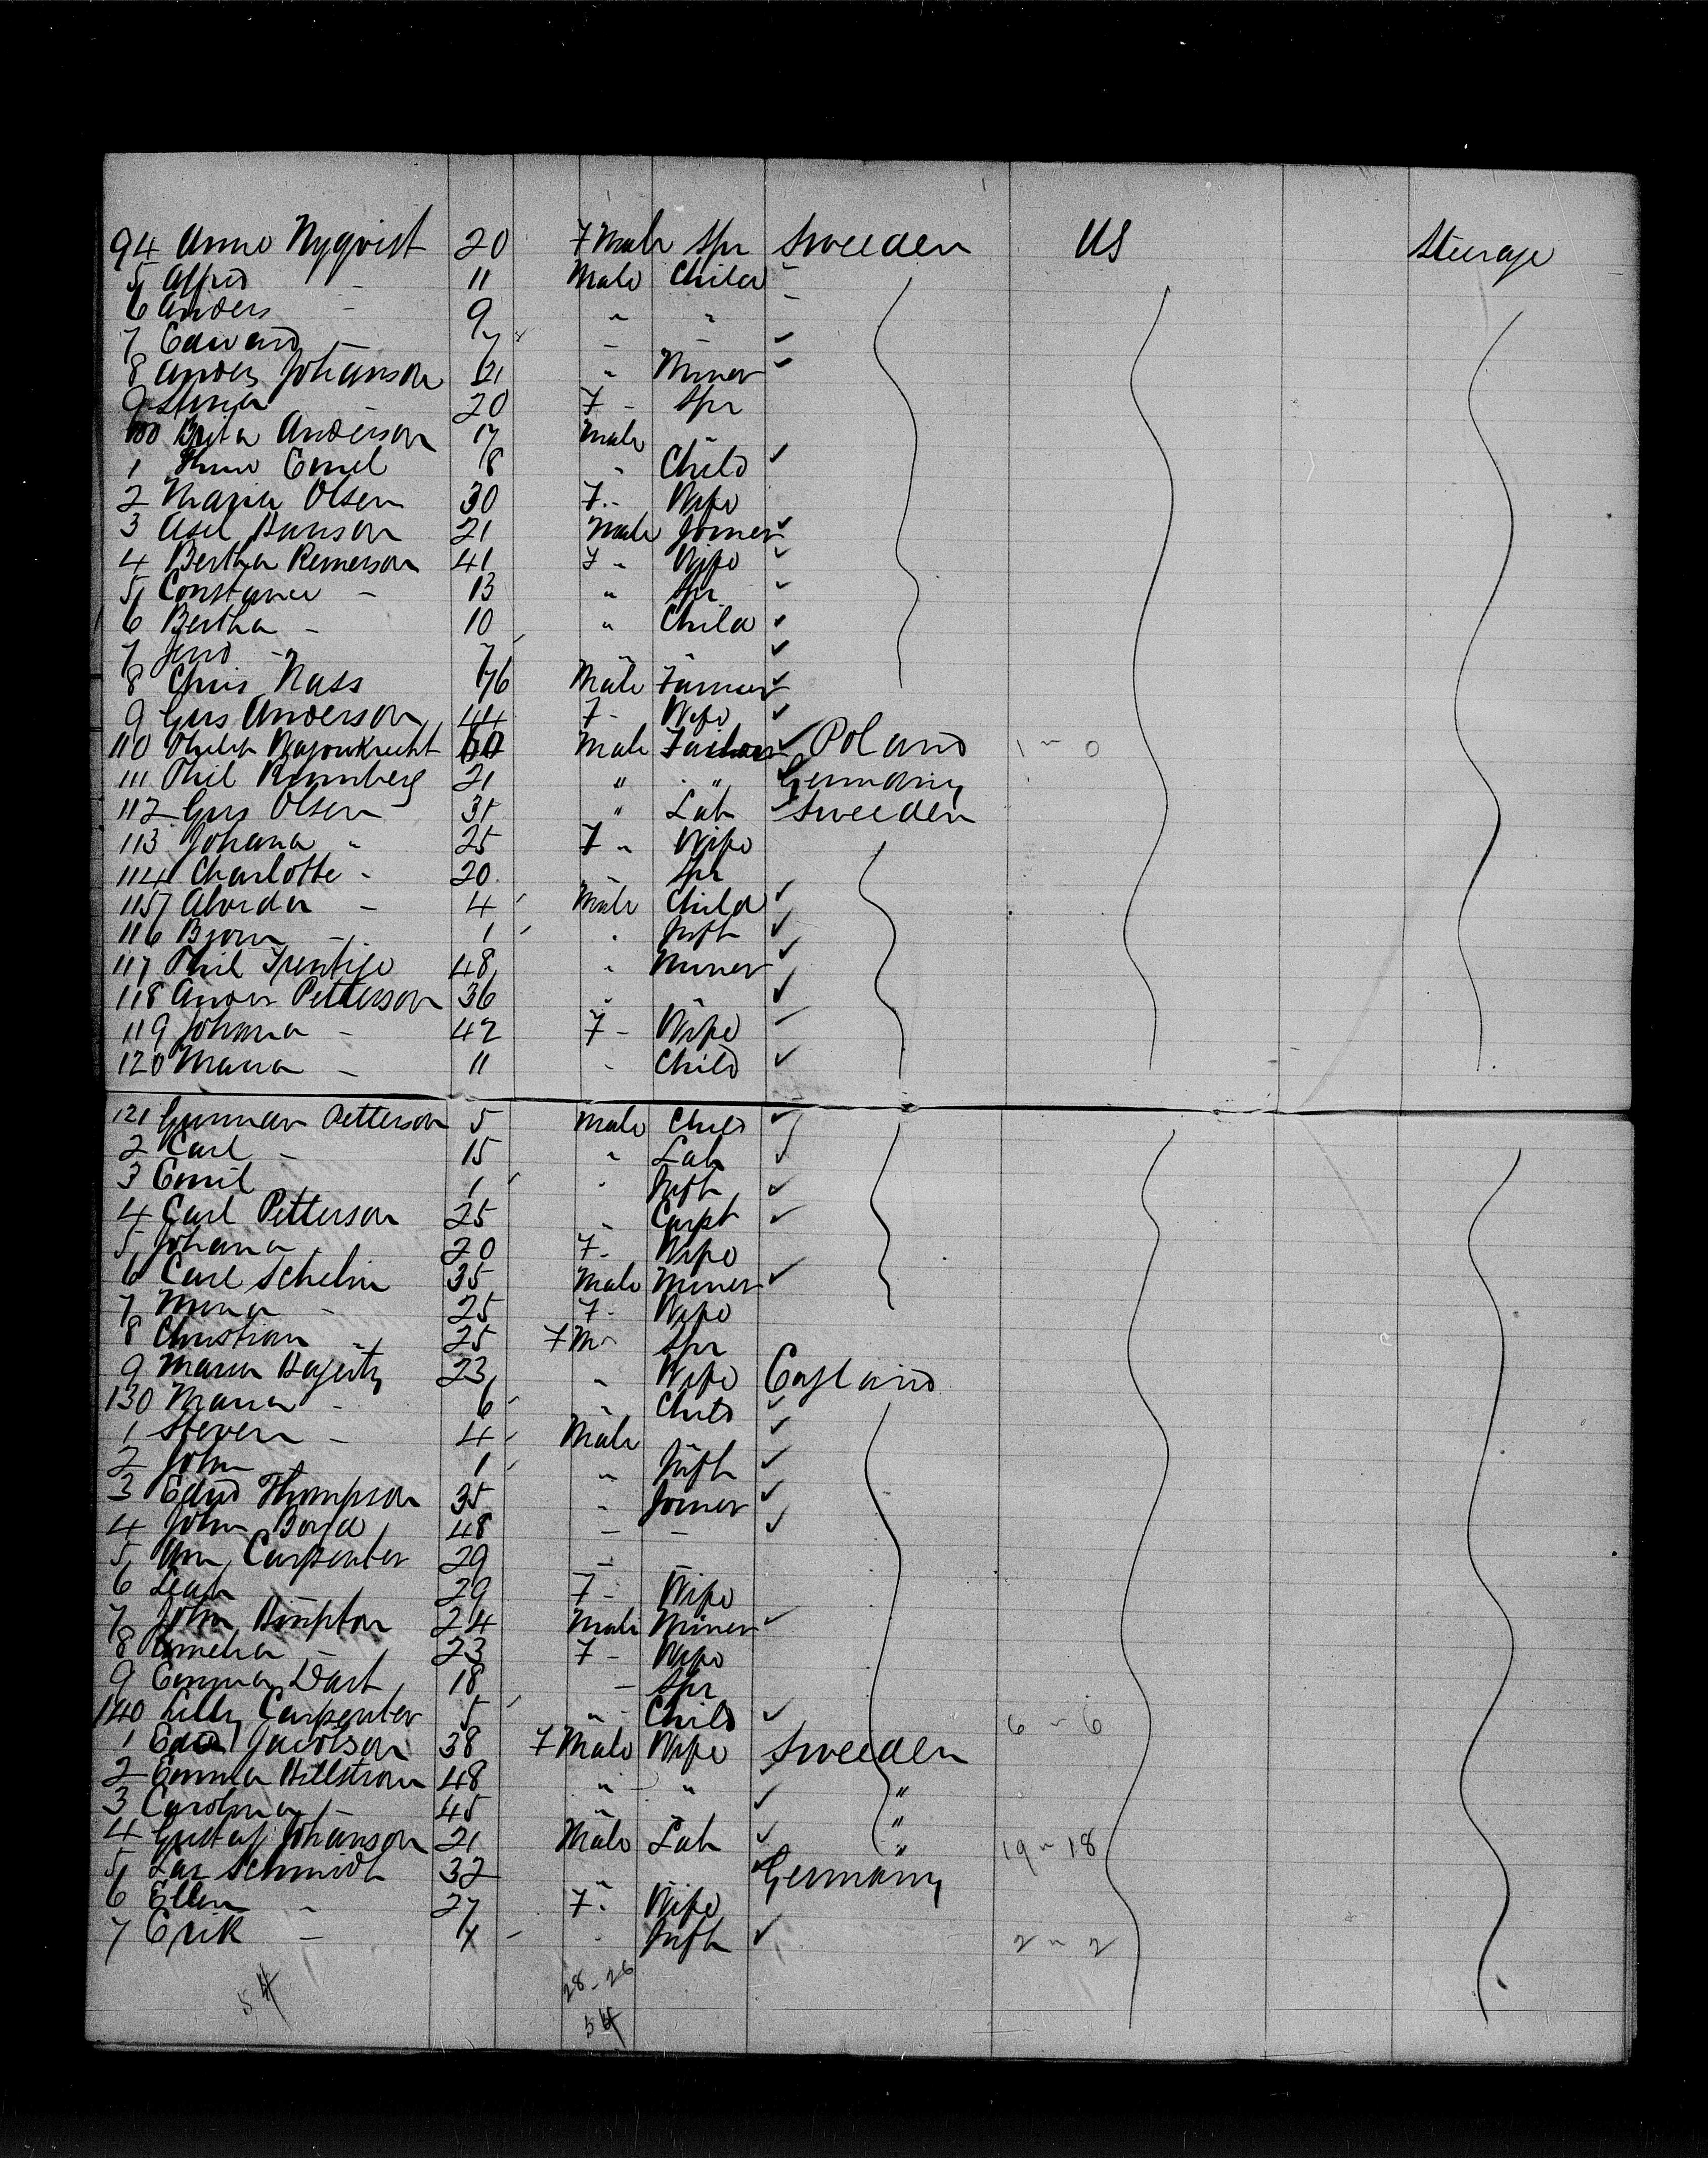 94 Anna Nyqvist 20 Fmale Spr Sweeden US Steerage
5 Alfred - 11 Male Child -
6 Anders - 9 " " -
7 Edward - 7 - - ✓
8 Anders Johanson 21 " Miner ✓
9 20 F - Spr
100 Brita Anderson 17 Male "
1 Emil 8 " Child ✓
2 Maria Olsen 30 F.- Wife
3 Axel Hanson 21 Male Joiner ✓
4 Bertha Remerson 41 F " Wife ✓
5 Constance - 13 " Spr ✓
6 Bertha - 10 " Child ✓
7 - 7 " " ✓
8 Chris Nass 76 Male Farmer ✓
9 Gus Anderson 44 F - Wife ✓
110 Male ✓ Poland 1 - 0
111 Phil 21 " " Germany
112 Gus Olsen 31 " Lab ✓ Sweeden
113 Johana " 25 F " Wife
114 Charlotte - 20 Spr
115 - 4 Male Child ✓
116 Bjorn - 1 " Inft ✓
117 Phil 48 " Miner ✓
118 Anders Petterson 36 " " ✓
119 Johana - 42 F - Wife ✓
120 Maria - 11 " Child ✓
121 Gunnar Petterson 5 Male Child ✓
2 Carl - 15 " Lab ✓
3 Emil 1 " Inft ✓
4 Carl Petterson 25 " Carpt ✓
5 Johana 20 F - Wife
6 Carl Schelin 35 Male Miner ✓
7 Mina - 25 F - Wife
8 Christian - 25 Fm " Spr
9 Maria Hagerty 23 " Wife England
130 Maria - 6 " Child ✓
1 Steven - 4 Male " ✓
2 John 1 " Inft ✓
3 Edwd Thompson 35 " Joiner ✓
4 John Boyd 48 - - ✓
5 Wm Carpenter 29 - -
6 Leah 29 F - Wife
7 John Simpton 24 Male Miner ✓
8 Amelia - 23 F - Wife
9 Emma Dart 18 - Spr
140 Lilly Carpenter 5 " - Child ✓ 6 - 6
1 Jacobson 38 F Male Wife Sweeden
2 Emma Hillstrom 48 " " ✓ "
3 Carolina - 45 " " ✓ "
4 Gustaf Johanson 21 Male Lab ✓ " 19 - 18
5 Schmidt 32 " " Germany
6 Ellen " 27 F " Wife
7 Erik - " Inft ✓ 2 - 2
28 - 26
54 54